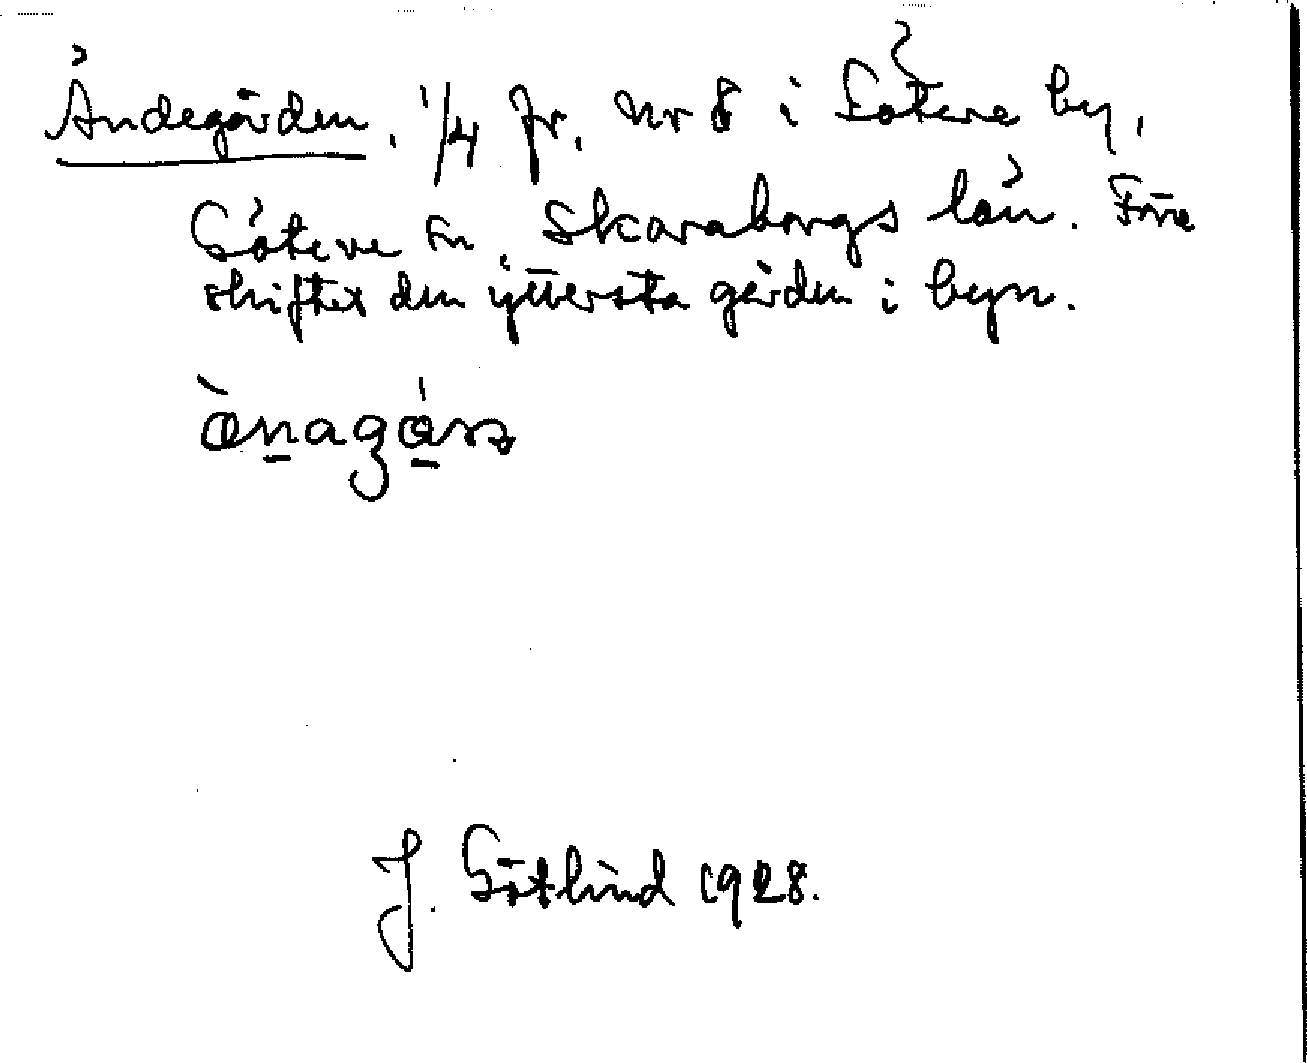 Ändegården, 1/4 fr. nr 8 i Göteve by,
Göteve sn, Skaraborgs län. Före
skiftet den yttersta gården i byn.
J. Götlind 1928.